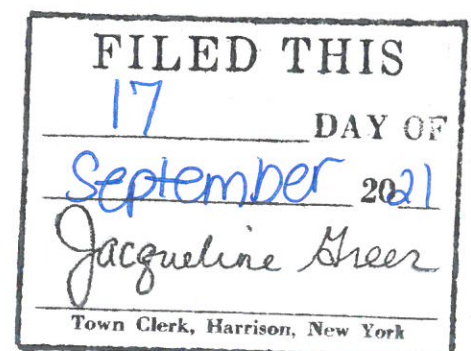 FILED THIS
17 DAY OF
September 2021
Jacqueline Greer
Town Clerk, Harrison, New York